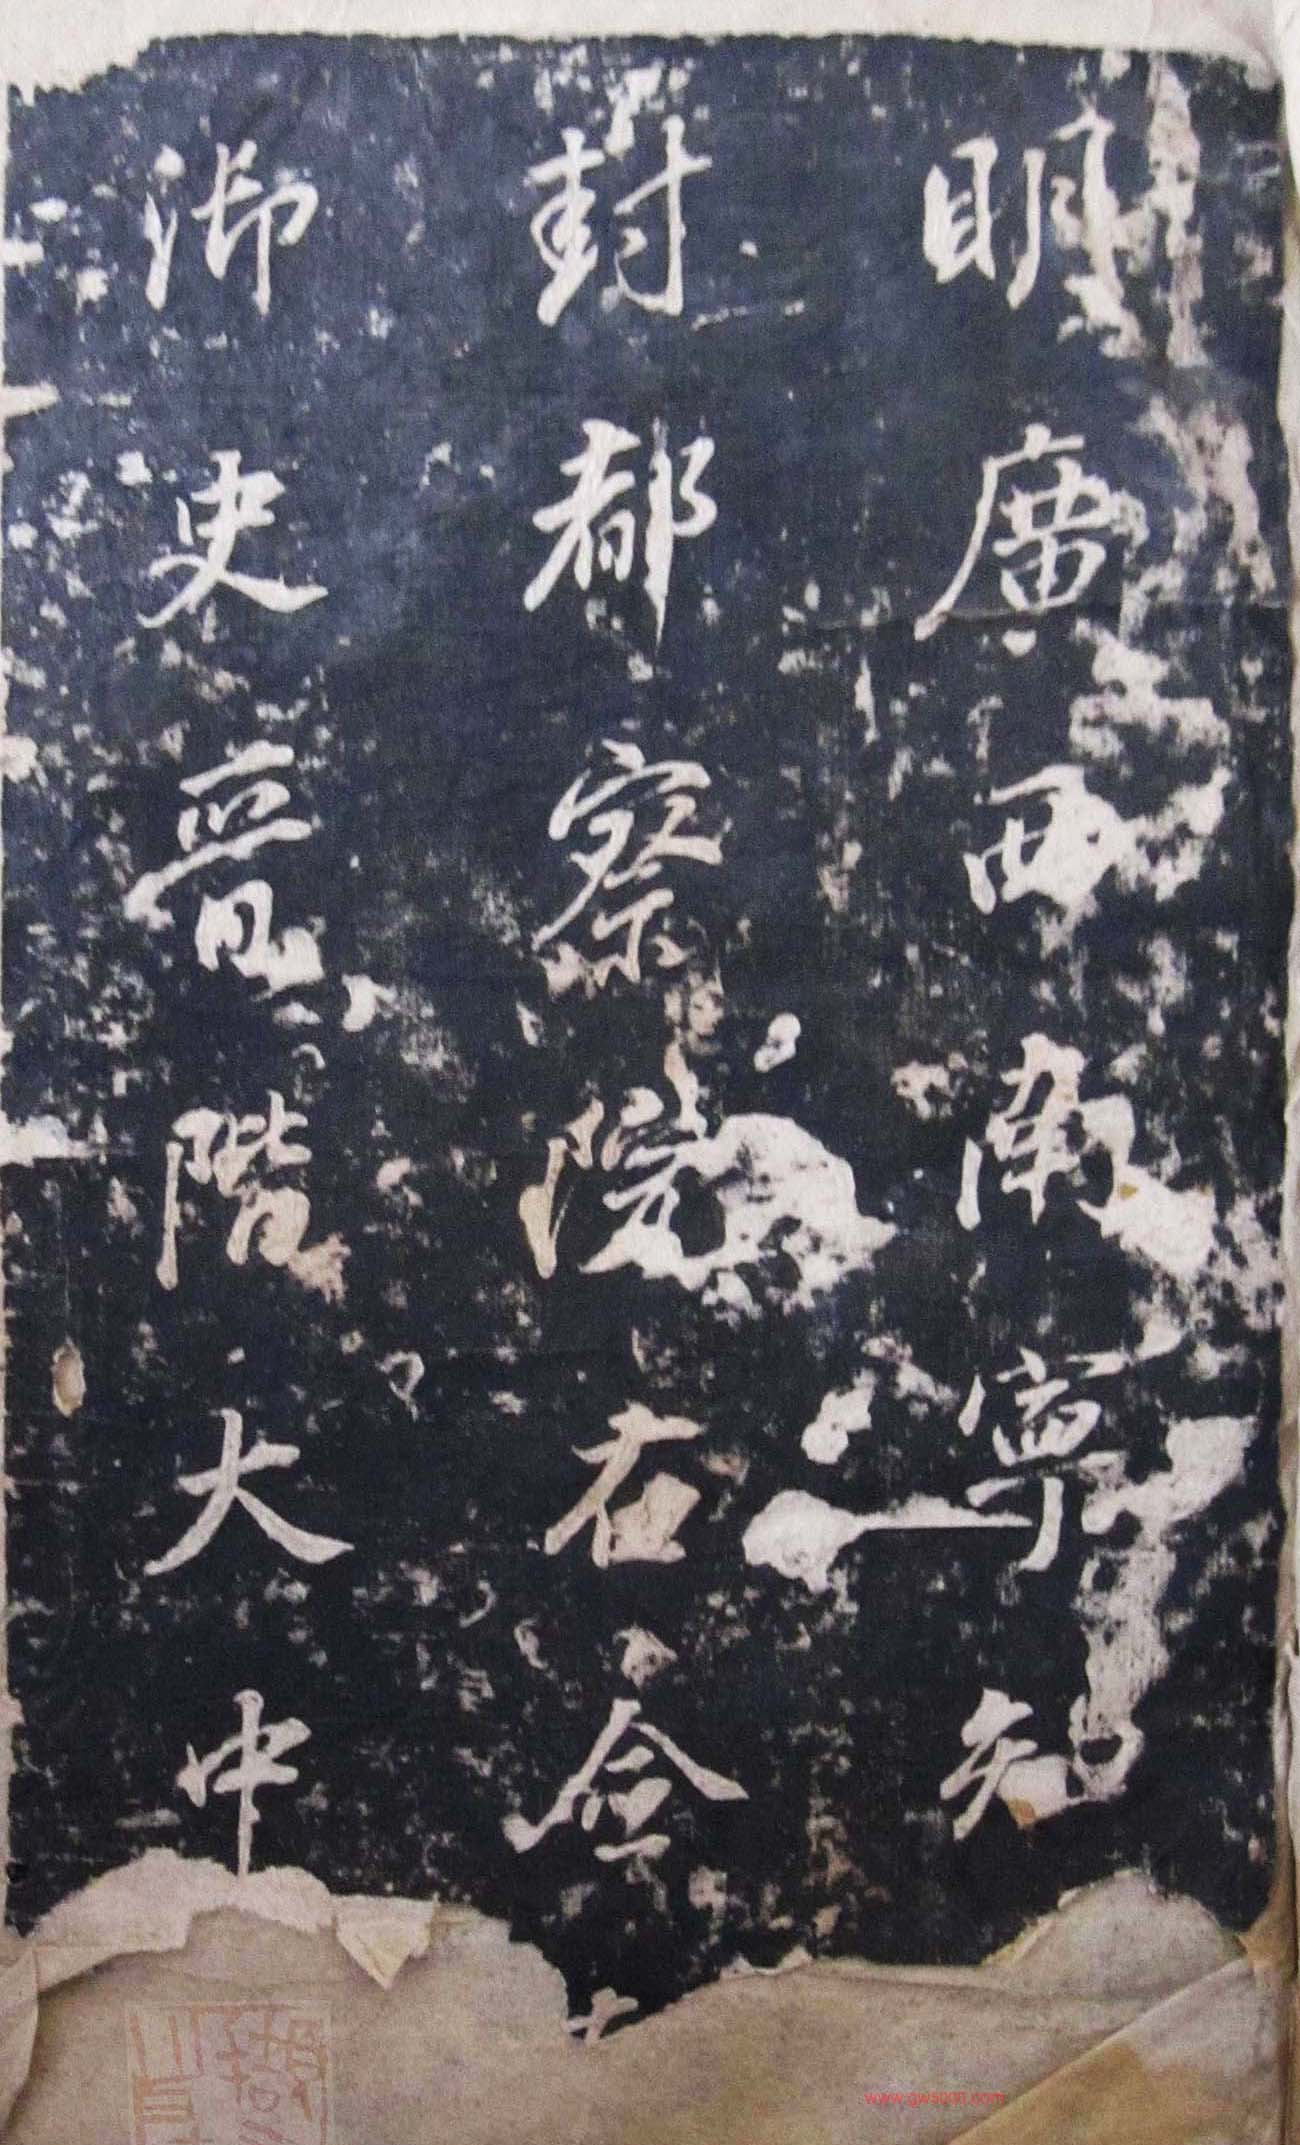 明廣西南寧知
封都察院在僉
御史晉階大中
www.gw5000.com